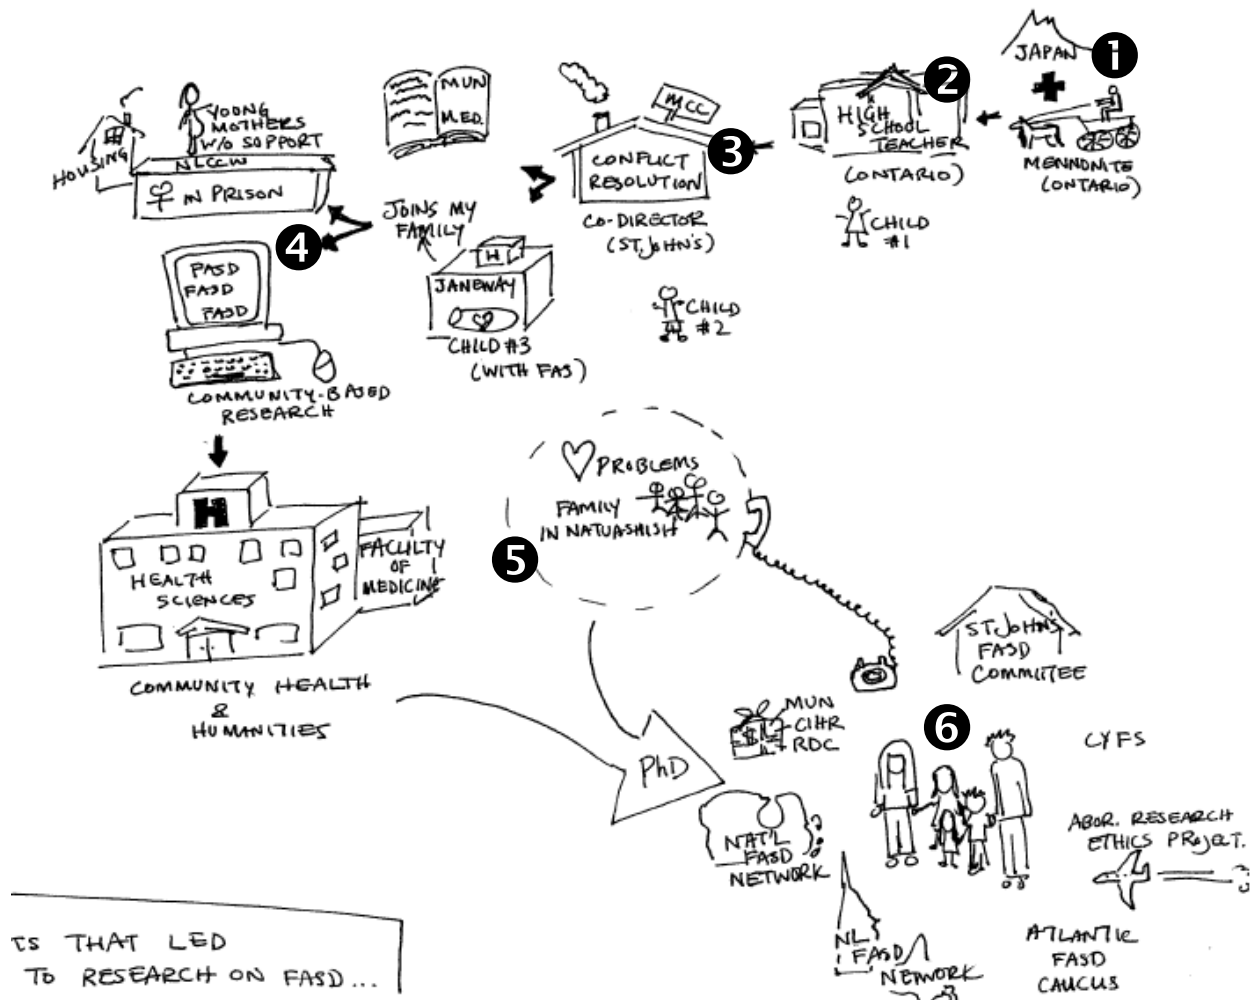 1
JAPAN
MENNONITE
(ONTARIO)
2
HIGH
SCHOOL
TEACHER
(ONTARIO)
CHILD
#1
3
MCC
CONFLICT
RESOLUTION
CO-DIRECTOR
(ST. JOHN'S)
CHILD
#2
MUN
MED.
JOINS MY
FAMILY
H
JANEWAY
CHILD #3
(WITH FAS)
4
HOUSING
YOUNG
MOTHERS
W/O SUPPORT
NLCCW
IN PRISON
FASD
FASD
FASD
COMMUNITY-BASED
RESEARCH
H
HEALTH
SCIENCES
FACULTY
OF
MEDICINE
COMMUNITY HEALTH
&
HUMANITIES
5
PROBLEMS
FAMILY
IN NATUASHISH
PhD
6
ST JOHN'S
FASD
COMMITTEE
$
MUN
CIHR
RDC
NAT'L
FASD
NETWORK
CYFS
ABOR. RESEARCH
ETHICS PROJECT.
NL
FASD
NETWORK
ATLANTIC
FASD
CAUCUS
TS THAT LED
TO RESEARCH ON FASD...